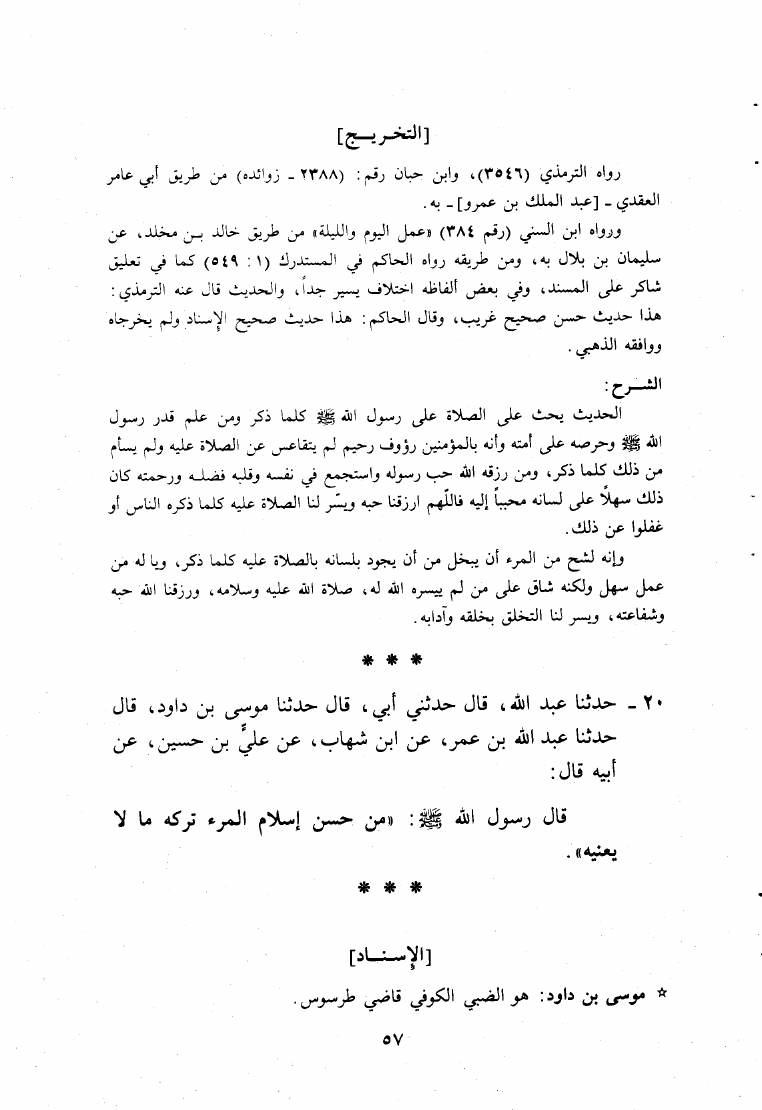 [التخريـــج]
رواه الترمذي (٣٥٤٦)، وابن حبان رقم: (٢٣٨٨ ـ زوائده) من طريق أبي عامر
العقدي ـ [عبد الملك بن عمرو] ـ به.
ورواه ابن السني (رقم ٣٨٤) «عمل اليوم والليلة» من طريق خالد بـن مخلد، عن
سليمان بن بلال به، ومن طريقه رواه الحاكم في المستدرك (١: ٥٤٩) كما في تعليق
شاكر على المسند، وفي بعض ألفاظه اختلاف يسير جداً، والحديث قال عنه الترمذي:
هذا حديث حسن صحيح غريب، وقال الحاكم: هذا حديث صحيح الإسناد ولم يخرجاه
ووافقه الذهبي.
الشـــرح:
الحديث يحث على الصلاة على رسول الله ﷺ كلما ذكر ومن علم قدر رسول
الله ﷺ وحرصه على أمته وأنه بالمؤمنين رؤوف رحيم لم يتقاعس عن الصلاة عليه ولم يسأم
من ذلك كلما ذكر، ومن رزقه الله حب رسوله واستجمع في نفسه وقلبه فضلـه ورحمته كان
ذلك سهلاً على لسانه محبباً إليه فاللّهم ارزقنا حبه ويسّر لنا الصلاة عليه كلما ذكره الناس أو
غفلوا عن ذلك.
وإنه لشح من المرء أن يبخل من أن يجود بلسانه بالصلاة عليه كلما ذكر، ويا له من
عمل سهل ولكنه شاق على من لم ييسره الله له، صلاة الله عليه وسلامه، ورزقنا الله حبه
وشفاعته، ويسر لنا التخلق بخلقه وآدابه.
* * *
٢٠ ـ حدثنا عبد الله، قال حدثني أبي، قال حدثنا موسى بن داود، قال
حدثنا عبد الله بن عمر، عن ابن شهاب، عن عليِّ بن حسين، عن
أبيه قال:
قال رسول الله ﷺ: «من حسن إسلام المرء تركه ما لا
يعنيه».
* * *
[الإســناد]
☆ موسى بن داود: هو الضبي الكوفي قاضي طرسوس.
٥٧